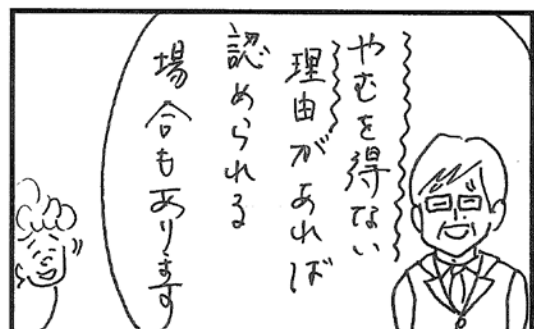 やむを得ない
理由があれば
認められる
場合もあります